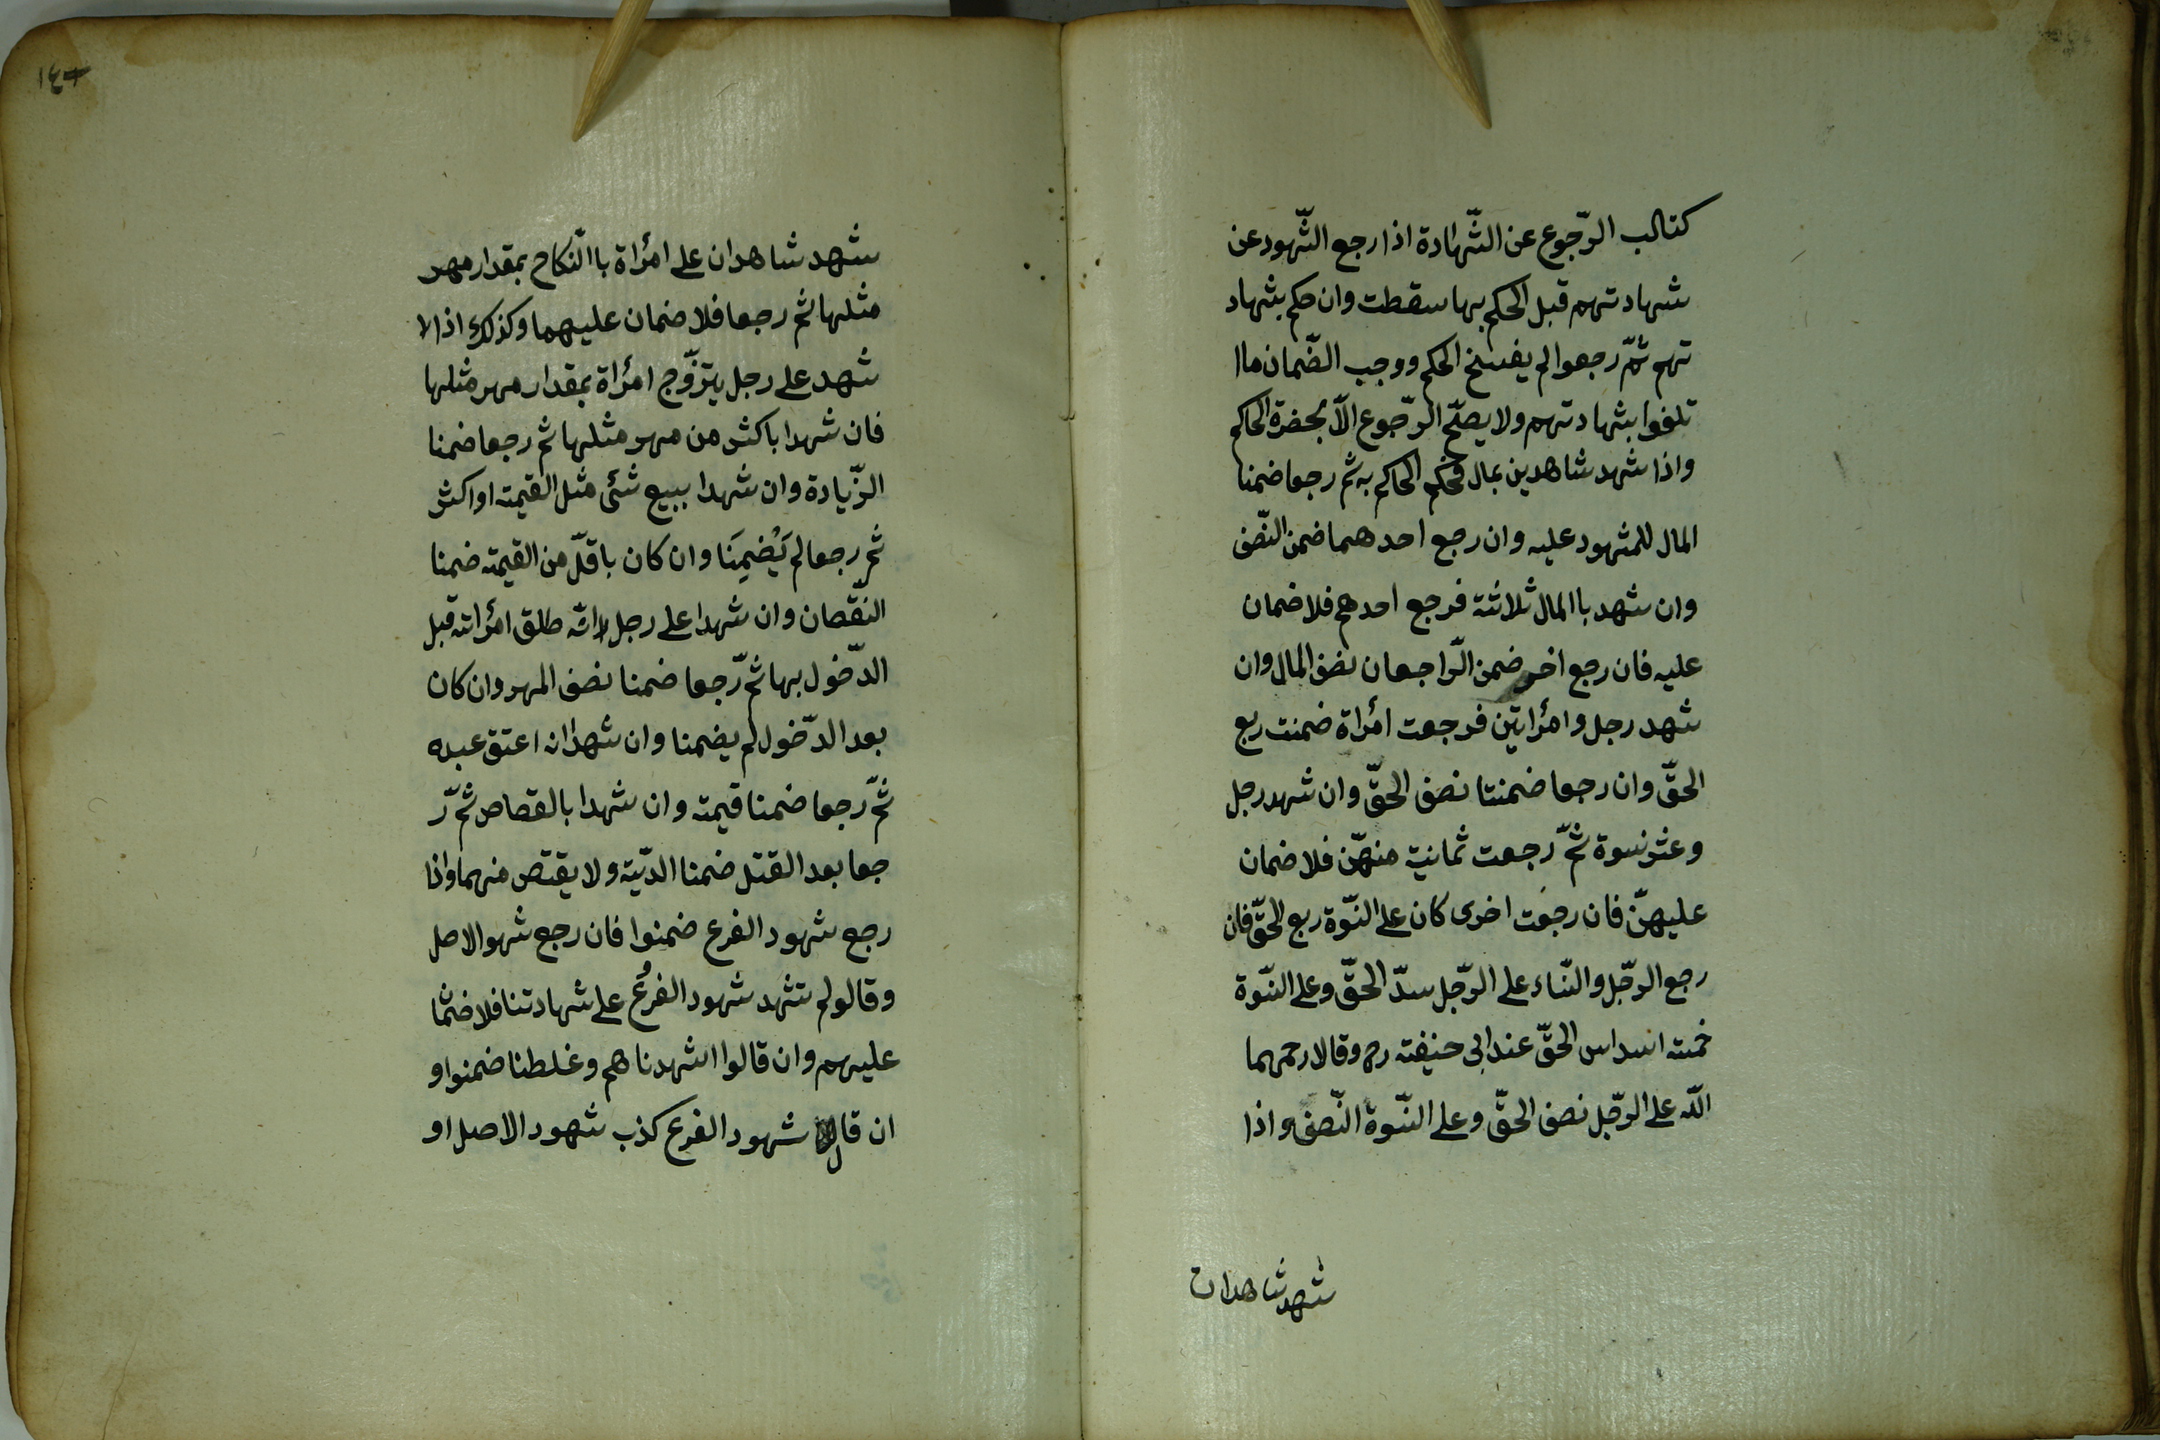 كتاب الرّجوع عن الشّهادة اذا رجع الشّهود عن
شهادتهم قبل الحكم بها سقطت وان حكم بشهاد
تهم ثمّ رجعوا لم يفسخ الحكم ووجب الضّمان ماا
تلفوا بشهادتهم ولا يصحّ الرّجوع الّا بحضرة الحاكم
واذا شهد شاهدين بمال فحكم الحاكم به ثم رجعا ضمنا
المال للمشهود عليه وان رجع احدهما ضمن النّصف
وان شهد باالمال ثلاثة فرجع احدهم فلا ضمان
عليه فان رجع اخر ضمن الرّاجعان نصف المال وان
شهد رجل وامرأتين فرجعت امرأة ضمنت ربع
الحقّ وان رجعا ضمنتا نصف الحقّ وان شهد رجل
وعشر نسوة ثمّ رجعت ثمانية منهنّ فلا ضمان
عليهنّ فان رجعت اخرى كان على النّسوة ربع الحقّ فان
رجع الرّجل والنّساء على الرّجل سدّ الحقّ وعلى النّسوة
خمسة اسداس الحقّ عند ابى حنيفة رح وقالا رحمهما
اللّه على الرّجل نصف الحقّ وعلى النّسوة النّصف واذا
شهد شاهدان
١٤٦
شهد شاهدان على امرأة باالنّكاح بمقدار مهر
مثلها ثم رجعا فلا ضمان عليهما وكذلك اذا
شهد على رجل يتزوّج امرأة بمقدار مهر مثلها
فان شهدا باكثر من مهر مثلها ثم رجعا ضمنا
الزّيادة وان شهدا ببيع شئ مثل القيمة او اكثر
ثم رجعا لم يَضمِنَا وان كان باقلّ من القيمة ضمنا
النّقصان وان شهدا على رجل انّه طلق امرأته قبل
الدّخول بها ثم رّجعا ضمنا نصف المهر وان كان
بعد الدّخول لم يضمنا وان شهدا انه اعتق عبده
ثمّ رجعا ضمنا قيمة وان شهدا بالقصاص ثم رّ
جعا بعد القتل ضمنا الدّية ولا يقتص منهما واذا
رجع شهود الفرع ضمنوا فان رجع شهو الاصل
وقالو لم تشهد شهود الفرعُ على شهادتنا فلا ضمان
عليهم وان قالوا اشهدنا هم وغلطنا ضمنوا و
ان قال شهود الفرع كذب شهود الاصل او